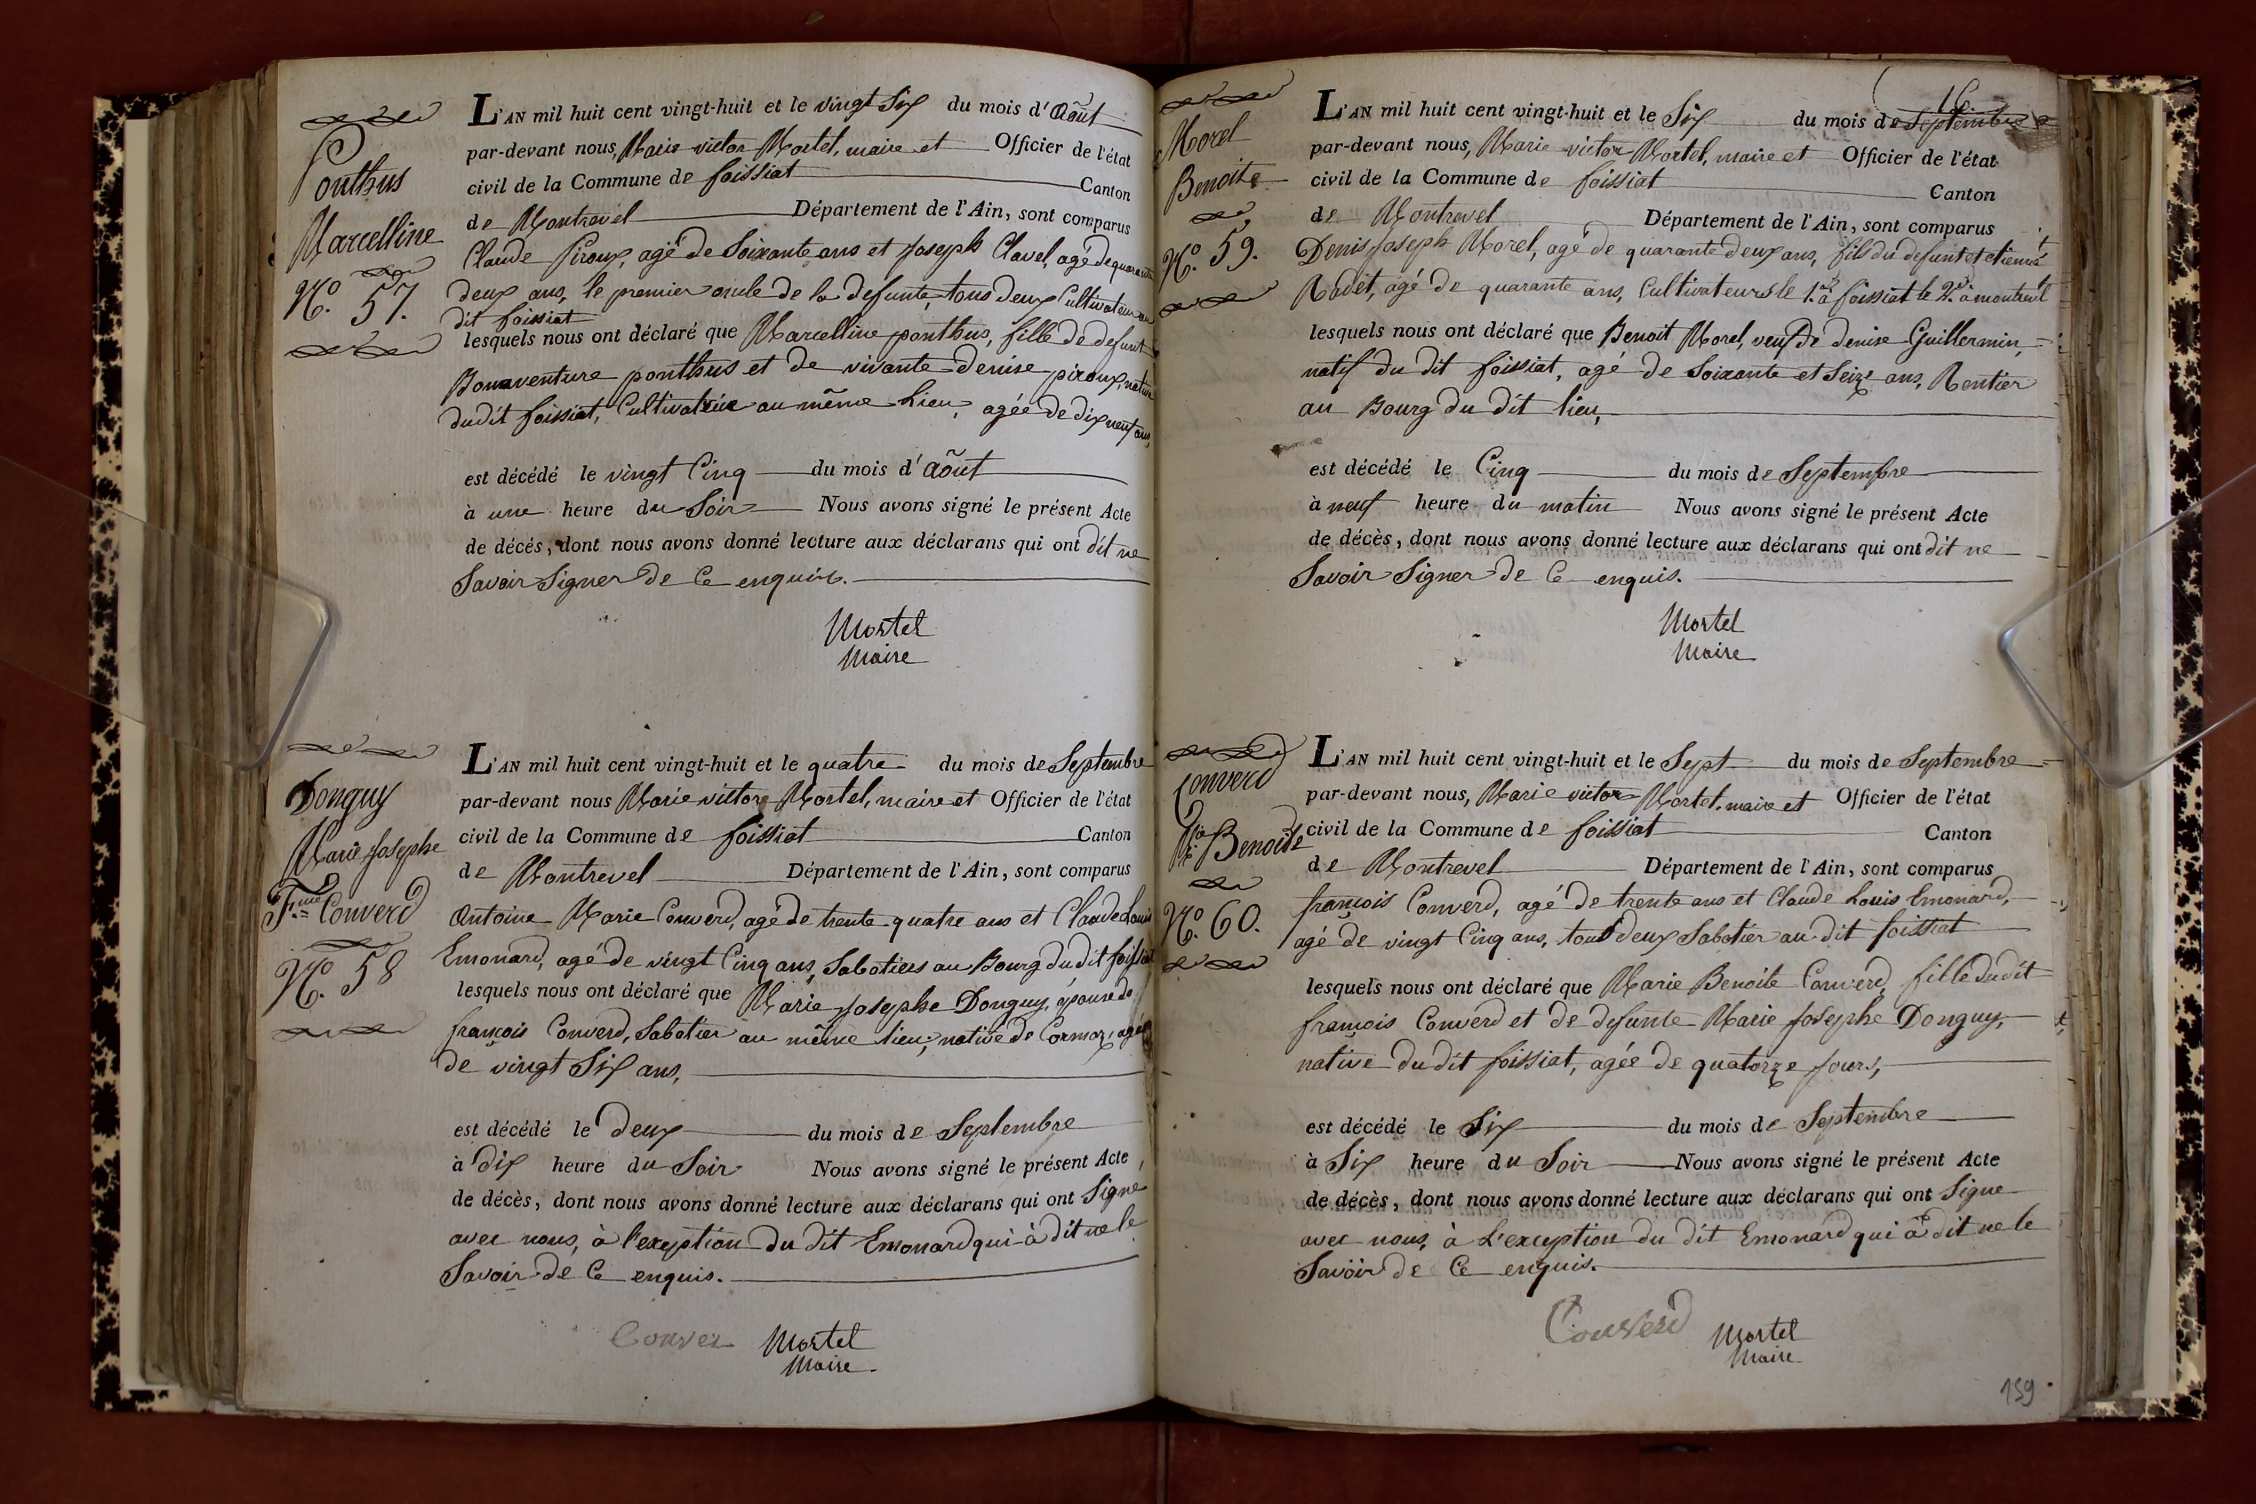 Ponthus
Marcelline
N.o 57.
L'AN mil huit cent vingt-huit et le vingt Six du mois d'Aôut
par-devant nous, Marie victor Mortel, maire et Officier de l'état
civil de la Commune de foissiat Canton
de Montrevel Département de l'Ain, sont comparus
Claude Piroux, agé de Soixante ans et Joseph Clavel, agé de quarante
deux ans, le premier oncle de la defunte, tous deux Cultivateurs au
dit foissiat
lesquels nous ont déclaré que Marcelline ponthus, fille de defunt
Bonaventure ponthus et de vivante denise piroux, native
dudit foissiat, Cultivatrice au même Lieu, agée de dix neuf ans,
est décédé le vingt Cinq du mois d'Aôut
à une heure du Soir Nous avons signé le présent Acte
de décés, dont nous avons donné lecture aux déclarans qui ont dit ne
Savoir Signer de Ce enquis.
Mortel
Maire
Donguy
Marie Josephe
F.me Converd
N.o 58
L'AN mil huit cent vingt-huit et le quatre du mois de Septembre
par-devant nous Marie victor Mortel, maire et Officier de l'état
civil de la Commune de foissiat Canton
de Montrevel Département de l'Ain, sont comparus
Antoine Marie Converd, agé de trente quatre ans et Claude Louis
Emonard, agé de vingt Cinq ans, Sabotiers au Bourg du dit foissiat
lesquels nous ont déclaré que Marie Josephe Donguy, épouse de
françois Converd, Sabotier au même lieu, native de Cormoz, agée
de vingt Six ans,
est décédé le deux du mois de Septembre
à dix heure du Soir Nous avons signé le présent Acte
de décès, dont nous avons donné lecture aux déclarans qui ont Signe
avec nous, à l'exeption du dit Emonard qui à dit ne le
Savoir de Ce enquis.
Conver Mortel
Maire
16
Morel
Benoit
N.o 59.
L'AN mil huit cent vingt-huit et le Six du mois de Septembre
par-devant nous, Marie victor Mortel, maire et Officier de l'état
civil de la Commune de foissiat Canton
de Montrevel Département de l'Ain, sont comparus
Denis Joseph Morel, agé de quarante deux ans, fils du defunt et etienne
Radet, agé de quarante ans, Cultivateurs le 1.er à foissiat le 2.d à montrevel
lesquels nous ont déclaré que Benoit Morel, veuf de denise Guillermin,
natif du dit foissiat, agé de Soixante et Seize ans, Rentier
au Bourg du dit lieu,
est décédé le Cinq du mois de Septembre
à neuf heure du matin Nous avons signé le présent Acte
de décès, dont nous avons donné lecture aux déclarans qui ont dit ne
Savoir Signer de Ce enquis.
Mortel
Maire
Converd
M.ie Benoite
N.o 60.
L'AN mil huit cent vingt-huit et le Sept du mois de Septembre
par-devant nous, Marie victor Mortel, maire et Officier de l'état
civil de la Commune de foissiat Canton
de Montrevel Département de l'Ain, sont comparus
françois Converd, agé de trente ans et Claude Louis Emonard,
agé de vingt Cinq ans, tous deux Sabotier au dit foissiat
lesquels nous ont déclaré que Marie Benoite Converd, fille du dit
françois Converd et de defunte Marie Josephe Donguy,
native du dit foissiat, agée de quatorze Jours,
est décédé le Six du mois de Septembre
à Six heure du Soir Nous avons signé le présent Acte
de décès, dont nous avons donné lecture aux déclarans qui ont Signe
avec nous, à L'exception du dit Emonard qui à dit ne le
Savoir de Ce enquis.
Converd Mortel
Maire
159